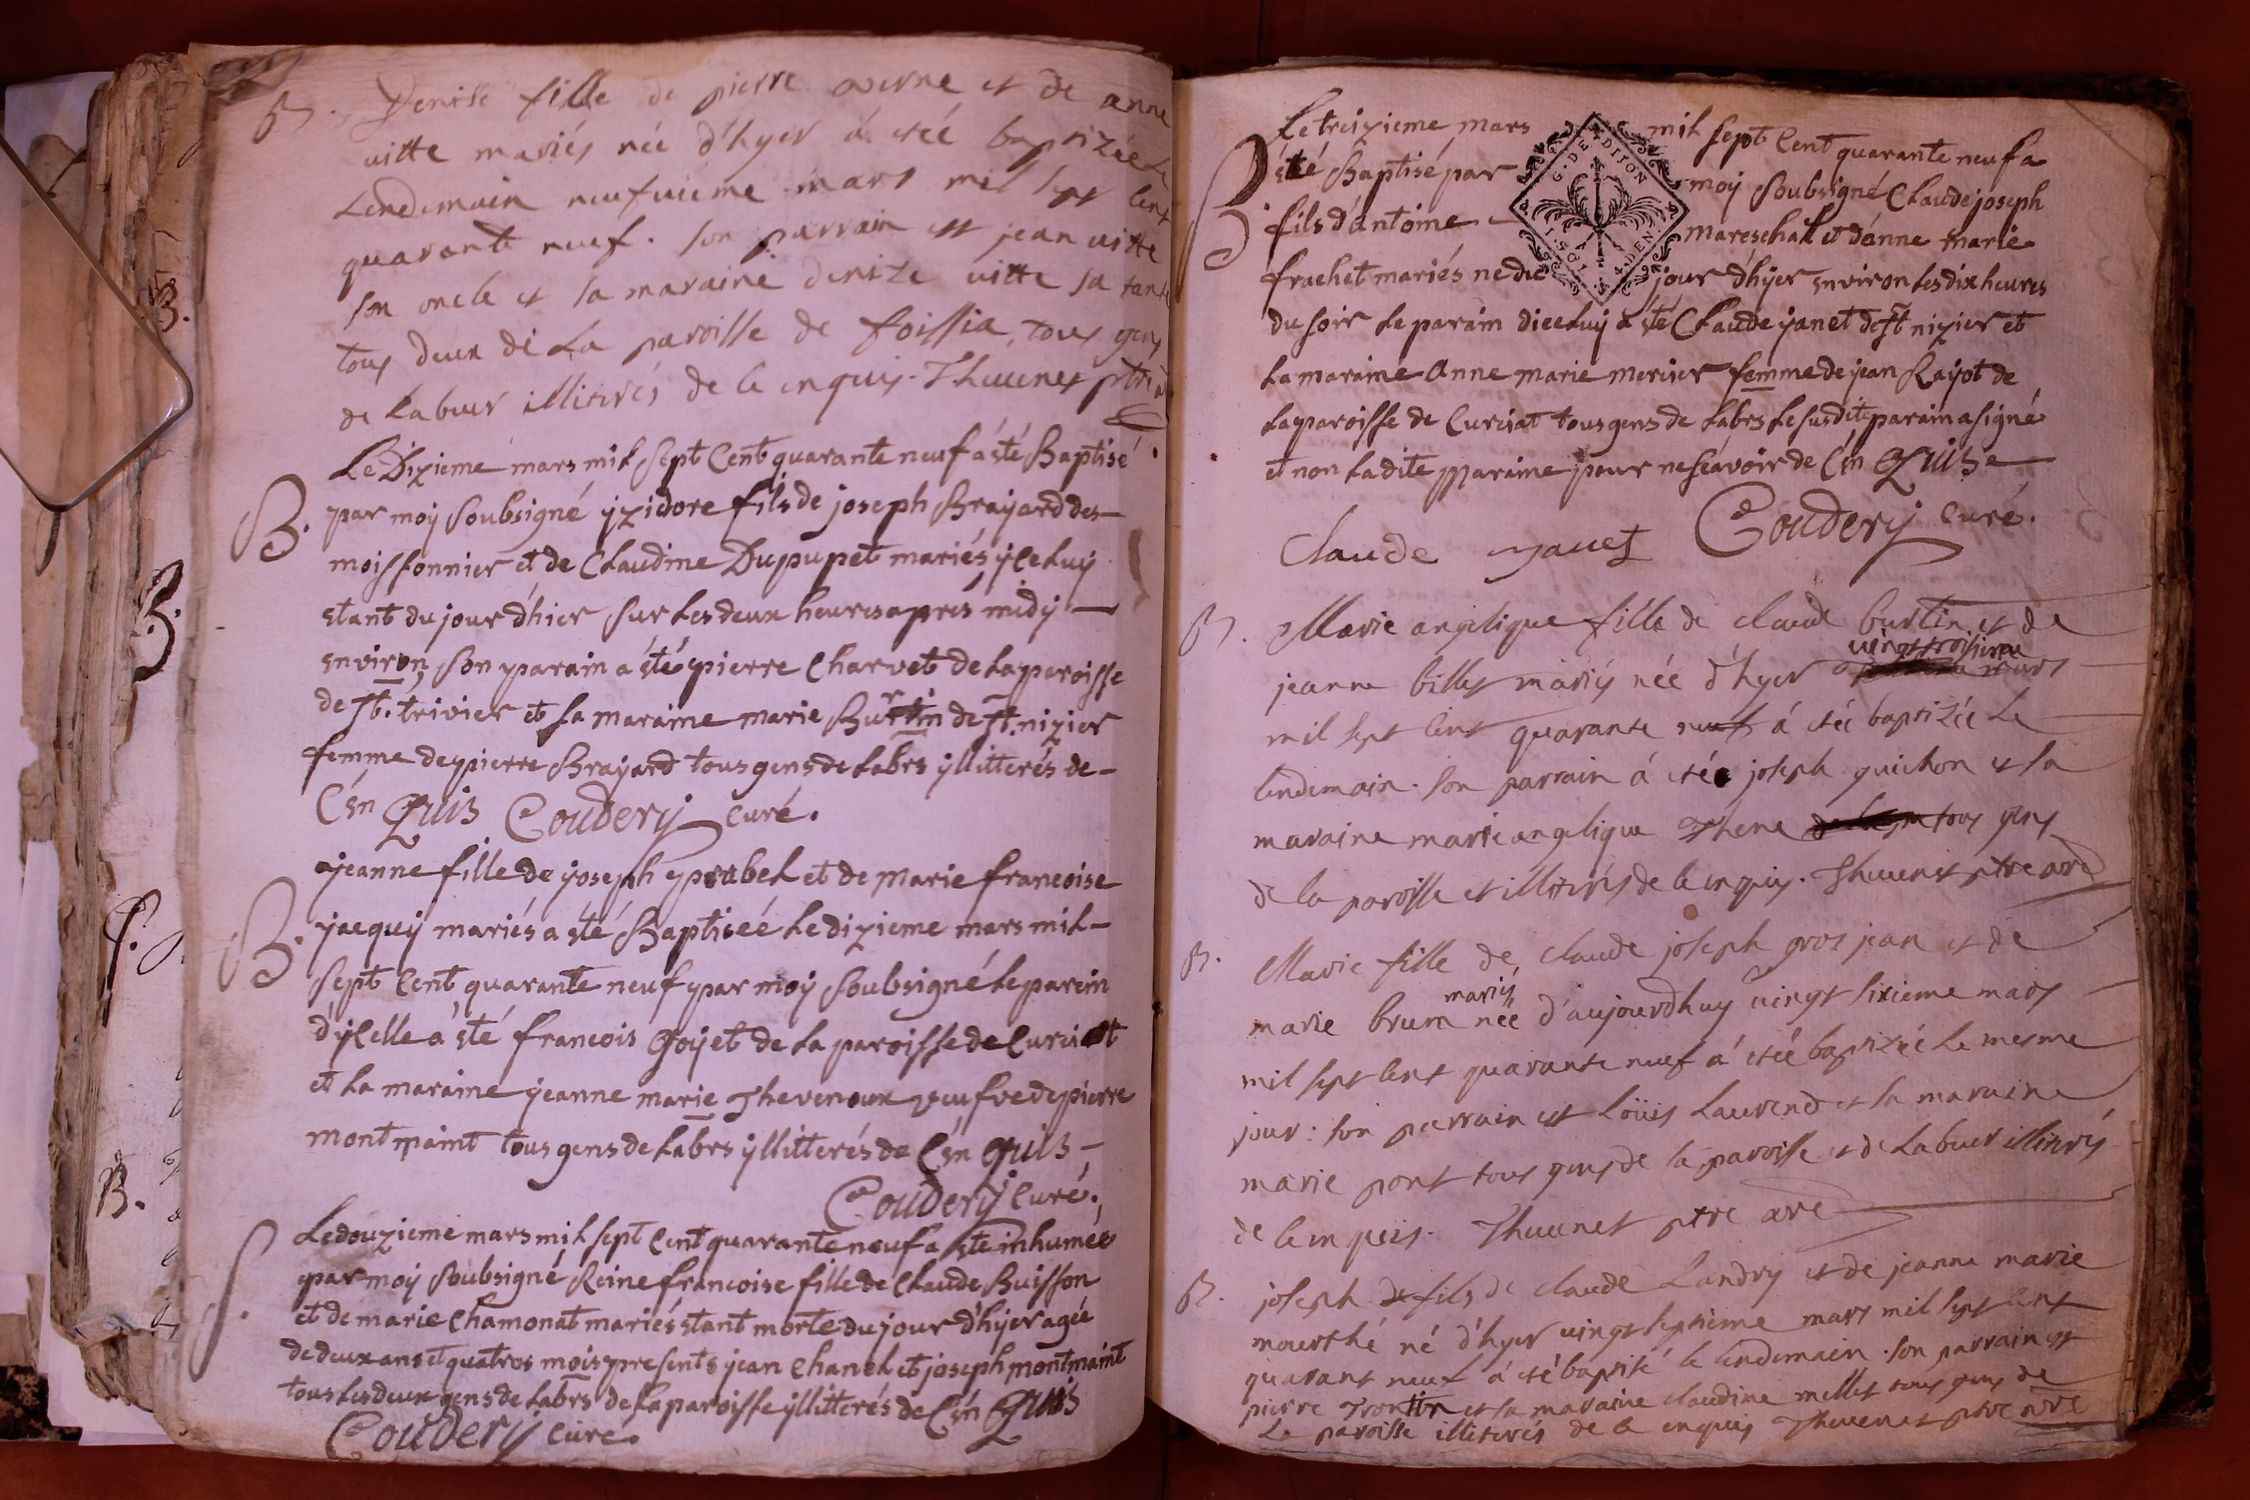 B. Denise fille de pierre averne et de anne
vitte mariés née d'hyer á etéé baptizée le
Lendemain neufvieme mars mil sept cent
quarante neuf. son parrain est jean vitte
son oncle et sa maraine denize vitte sa tante
tous deux de La paroisse de foissia, tous gens
de Labeur illiterés de ce enquis. Thuvenet ptre
B. Le Dizieme mars mil sept Cent quarante neuf a été Baptisé
par moÿ Soubsigné ÿzidore fils de joseph Braÿard des
moissonnier et de Claudine Dupupet mariés, ÿceluÿ
etant du jour d'hier sur les deux heures aprés midÿ
environ, son parain á été pierre Charvet de la paroisse
de St. trivier et sa maraine marie Burtin de St. nizier
femme de pierre Braÿard tous gens de Labrs ÿllitterés de
C'en Quis Couderÿ Curé.
B. jeanne fille de joseph prabel et de marie francoise
jacquÿ mariés a été Baptiséé Le dizieme mars mil
sept Cent quarante neuf par moÿ Soubsigné Le parein
d'ÿcelle a été francois Goÿet de la paroisse de Curciat
et La maraine jeanne marie Thevenoux veufve de pierre
montmaint tous gens de Labrs ÿllitterés de C'en Quis
Couderÿ Curé.
S. Le douzieme mars mil sept Cent quarante neuf a été inhumée
par moÿ Soubsigné Reine francoise fille de Claude Buisson
et de marie Chamonat mariés etant morte du jour d'hÿer agée
de deux ans et quatros mois presents jean Chanel et joseph montmaint
tous les deux gens de Labrs de la paroisse ÿllitterés de C'en Quis
Couderÿ Curé.
Le treizieme mars mil sept Cent quarante neuf a
B. été Baptisé par moÿ Soubsigné Claude joseph
fils d'antoine mareschal et d'anne marie
frachet mariés ne du jour d'hÿer environ les dix heures
G. DE DIJON
4. DEN
du soir Le parain d'iceluÿ a été Claude janet de St nizier et
La maraine Anne marie mercier femme de jean Raÿot de
La paroisse de Curciat tous gens de Labrs Le susdite parain a signé
et non La dite maraine pour ne scavoir de C'en Quise
Claude janet Couderÿ Curé.
B. Marie angelique fille de claude burtin et de
vingt troisieme
jeanne billet mariés née d'hyer mars
mil sept cent quarante neuf á etéé baptizée Le
lendemain. son parrain á eté joseph guichon et sa
maraine marie angelique Thene tous gens
de la paroisse et illiterés de ce enquis. Thuvenet ptre are
B. Marie fille de claude joseph gros jean et de
mariés
marie brun née d'aujourdhuy vingt sixieme mars
mil sept cent quarante neuf á etéé baptizée Le mesme
jour: son parrain est Loüis Laurend et sa maraine
marie pont tous gens de la paroisse et de Labeur illiterés
de ce enquis. Thuvenet ptre are
B. joseph fils de claude Landry et de jeanne marie
mourthé né d'hyer vingt septieme mars mil sept cent
quarant neuf á eté baptisé le lendemain. son parrain est
pierre Trontin et sa maraine claudine millet tous gens de
La paroisse illiterés de ce enquis Thuvenet ptre are